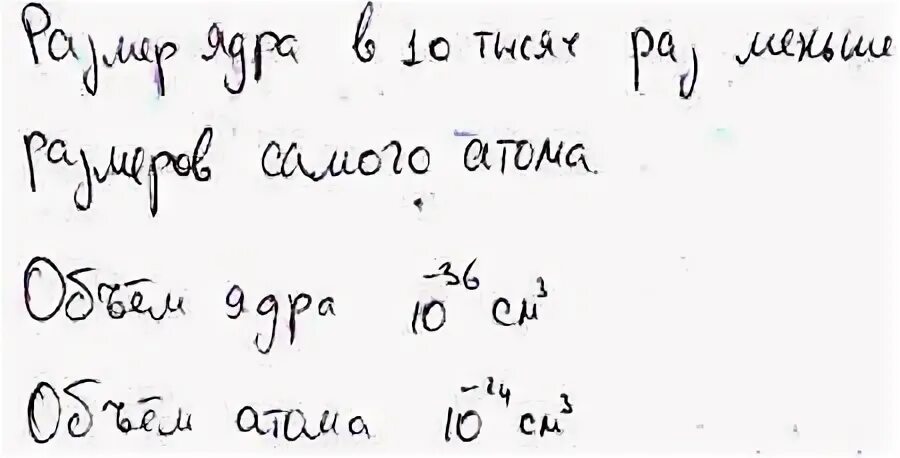 Размер ядра в 10 тысяч раз меньше
размеров самого атома.
Объём ядра 10⁻³⁶ см³
Объём атома 10⁻²⁴ см³